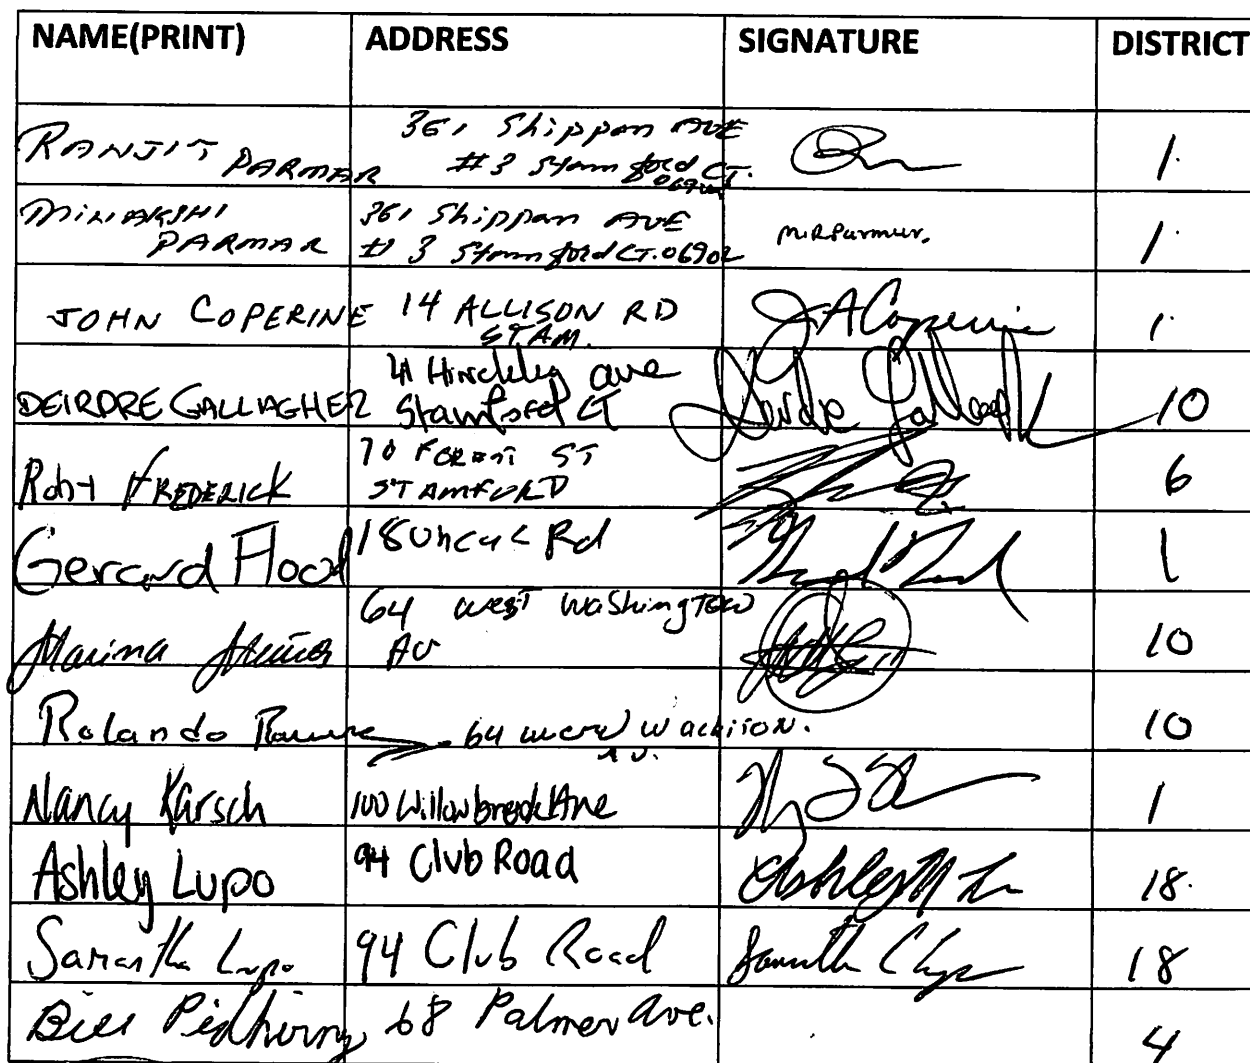 NAME(PRINT) ADDRESS SIGNATURE DISTRICT
RANJIT PARMAR 361 Shippan AVE #3 Stamford CT. 1
MINAKSHI PARMAR 361 Shippan AVE #3 Stamford CT. 06902 M.R.Parmar. 1
JOHN COPERINE 14 ALLISON RD STAM. JACoperine 1
DEIRDRE GALLAGHER Hinckley ave Stamford CT Deirdre Gallagher 10
Robt FREDERICK 70 FOREST ST STAMFORD 6
Gerard Flood 18 Uncas Rd 1
Marina 64 west Washington AV 10
Rolando 64 AV. 10
Nancy Karsch 100 Willowbrook Ave 1
Ashley Lupo 94 Club Road Ashley 18
Samantha Lupo 94 Club Road Samantha C Lupo 18
Bill 68 Palmer Ave. 4